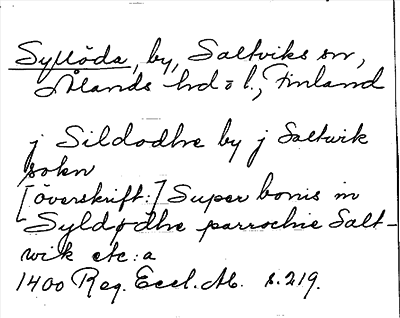 Syllöda, by, Saltviks sn,
Ålands hd o l., Finland
j Sildødhe by j Saltwik
sokn
[överskrift:] Super bonis in
Syldødhe parrochie Salt-
wik etc: a
1400 Reg. Eccl. Ab. s. 219.